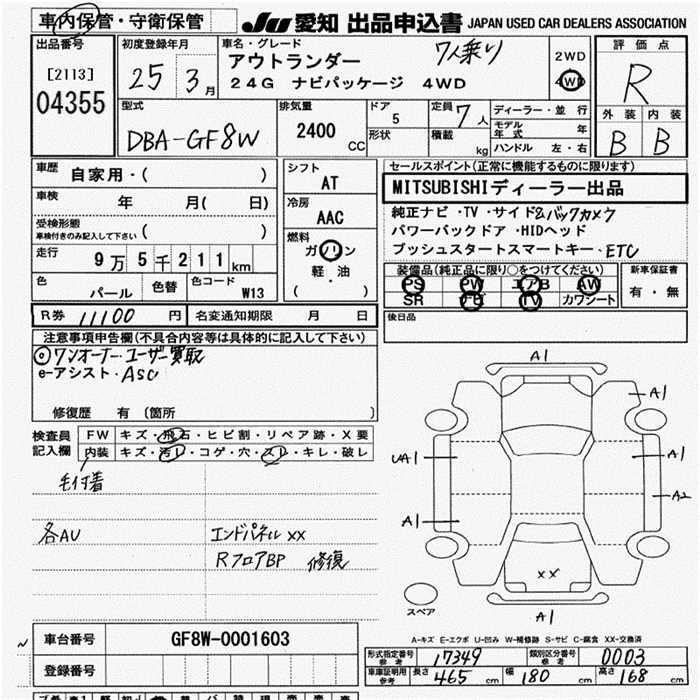 車内保管・守衛保管
JU 愛知 出品申込書 JAPAN USED CAR DEALERS ASSOCIATION
出品番号 [2113] 04355
初度登録年月 25 3月
車名・グレード 7人乗り
アウトランダー
24G ナビパッケージ 4WD
2WD
4WD
評価点 R
外装 B 内装 B
型式 DBA-GF8W
排気量 2400 CC
ドア 5
形状
定員 7人
積載 kg
ディーラー・並行
モデル年式 年
ハンドル 左・右
車歴 自家用・( )
車検 年 月( 日)
受検形態
車検付きのみ記入して下さい ( )
走行 9万5千211km
色 パール 色替 色コード W13
シフト AT
冷房 AAC
燃料 ガソリン
軽・油
( )
セールスポイント(正常に機能するものに限ります)
MITSUBISHIディーラー出品
純正ナビ・TV・サイド&バックカメラ
パワーバックドア・HIDヘッド
プッシュスタートスマートキー、ETC
装備品(純正品に限り○をつけてください)
PS PW エアB AW
SR ナビ TV カワシート
新車保証書
有・無
R券 11100 円 名変通知期限 月 日
後日品
注意事項申告欄(不具合内容等は具体的に記入して下さい)
◎ワンオーナー・ユーザー買取
e-アシスト・ASC
修復歴 有 (箇所 )
検査員記入欄
FW キズ・飛石・ヒビ割・リペア跡・X要
内装 キズ・汚レ・コゲ・穴・スレ・キレ・破レ
毛付着
各AU エンドパネルXX
RフロアBP 修復
A1
A1
UA1
A1
A2
A1
XX
スペア
A1
A-キズ E-エクボ U-凹み W-補修跡 S-サビ C-腐食 XX-交換済
車台番号 GF8W-0001603
登録番号
形式指定番号 参考 17349 類別区分番号 参考 0003
車庫証明用 参考 長さ 465 cm 幅 180 cm 高さ 168 cm